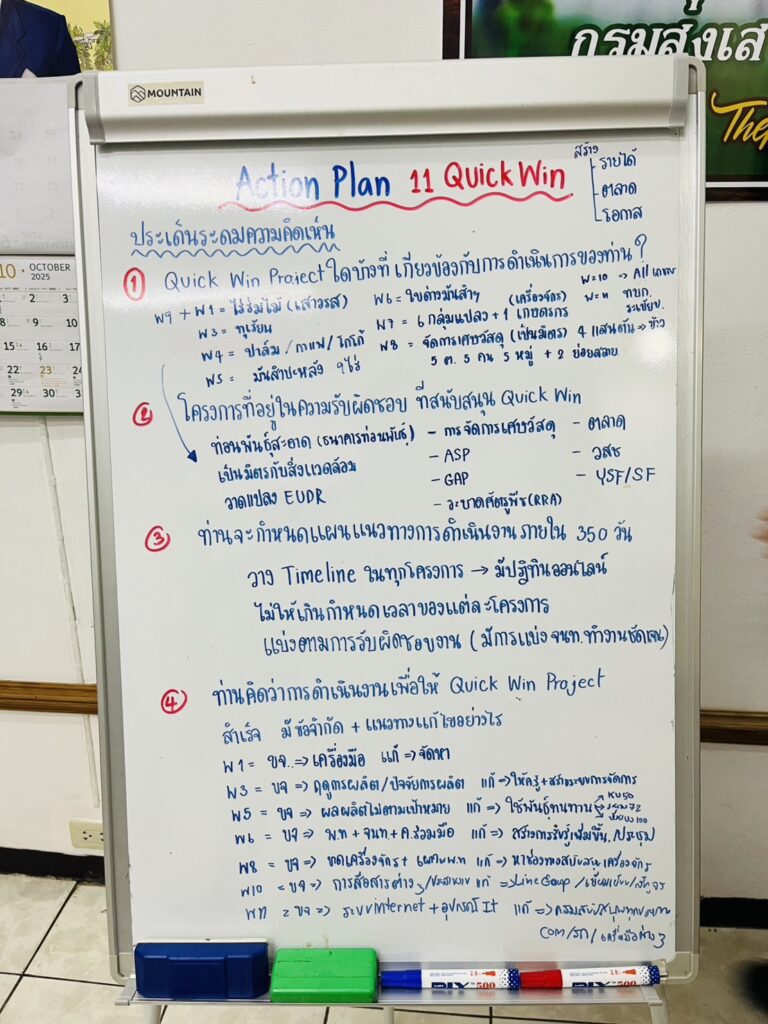 กรมส่งเส
The
MOUNTAIN
10 OCTOBER
2025
1 2 3
8 9 10
15 16 17
22 23 24
29 30 31
Action Plan 11 Quick Win
สร้าง
- รายได้
- ตลาด
- โอกาส
ประเด็นระดมความคิดเห็น
① Quick Win Project ใดบ้างที่ เกี่ยวข้องกับการดำเนินการของท่าน ?
W9 + W1 = ไร่ร่มไม้ (เสาวรส)
W3 = ทุเรียน
W4 = ปาล์ม / กาแฟ / โกโก้
W5 = มันสำปะหลัง ไร่
W6 = ใบด่างมันสำฯ
W7 = 6 กลุ่มแปลง + 1 เกษตรกร
W8 = จัดการเศษวัสดุ (เป็นมิตร) 4 แสนตัน → ข้าว
5 ต. 5 คน 5 หมู่ + 2 ย่อยสลาย
(เครื่องจักร)
W=10 → All เกษตร
W=11 ทบก.
② โครงการที่อยู่ในความรับผิดชอบ ที่สนับสนุน Quick Win
ท่อนพันธุ์สะอาด (ธนาคารท่อนพันธุ์)
เป็นมิตรกับสิ่งแวดล้อม
วาดแปลง EUDR
- การจัดการเศษวัสดุ
- ASP
- GAP
- ระบาดศัตรูพืช (RRA)
- ตลาด
- วสช
- YSF/SF
③ ท่านจะกำหนดแผนแนวทางการดำเนินงาน ภายใน 350 วัน
วาง Timeline ในทุกโครงการ → มีปฏิทินออนไลน์
ไม่ให้เกินกำหนดเวลาของแต่ละโครงการ
แบ่งตามการรับผิดชอบงาน (มีการแบ่ง จนท. ทำงานชัดเจน)
④ ท่านคิดว่าการดำเนินงานเพื่อให้ Quick Win Project
สำเร็จ มีข้อจำกัด + แนวทางแก้ไขอย่างไร
W1 = ขจ. => เครื่องมือ แก้ => จัดหา
W3 = ขจ => ฤดูการผลิต/ปัจจัยการผลิต แก้ => ให้ความรู้+สร้างระบบการจัดการ
W5 = ขจ => ผลผลิตไม่ตามเป้าหมาย แก้ => ใช้พันธุ์ทนทาน
KU50
ระยอง 72
ห้วยบง 100
W6 = ขจ => พ.ท + จนท. + ค.ร่วมมือ แก้ => สร้างการรับรู้เพิ่มขึ้น/ประชุม
W8 = ขจ => ขาดเครื่องจักร + พ.ท แก้ => หาช่องทางสนับสนุน เครื่องจักร
W10 = ขจ => การสื่อสารต่างๆ แก้ => Line Group /
W11 = ขจ => ระบบ internet + อุปกรณ์ It แก้ =>
COM/รถ/ เครื่องมือต่างๆ
PIX 500
PIX 500